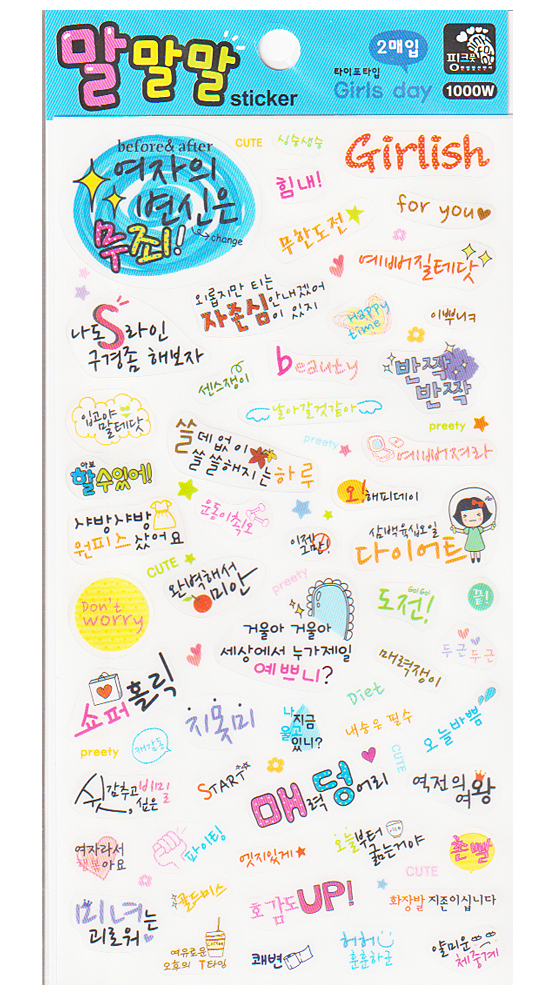 말말말
sticker
2매입
타이포타입
Girls day
핑크풋
1000W
before & after
여자의
변신은
무죄!
change
CUTE
싱숭생숭
Girlish
힘내!
for you
무한도전
예뻐질테닷
나도 S라인
구경좀 해보자
외롭지만 티는 안내겠어
자존심이 있지
Happy
time
이뿌니ㅋ
beauty
반짝
반짝
센스쟁이
날아갈것같아
입고야
말테닷
쓸데없이
쓸쓸해지는 하루
preety
preety
예뻐져라
아보
할수있어!
운동이촤오
오! 해피데이
샤방샤방
원피스 샀어요
이젠
그만!
삼백육십오일
다이어트
CUTE
완벽해서
미안
preety
Go! Go!
도전!
끝!
Don't
worry
거울아 거울아
세상에서 누가제일
예쁘니?
매력쟁이
두근두근
쇼퍼홀릭
지못미
나 지금
울고
있니?
Diet
내숭은 필수
오늘바쁨
preety
CUTE
쉿 감추고 비밀
싶은
START
매력덩어리
역전의
여왕
여자라서
행복아요
파이팅
엣지있게
오늘부터
굶는거야
촌빨
CUTE
미녀는
괴로워
골드미스
호감도UP!
화장발 지존이십니다
여유로운
오후의 T타임
COFFEE
쾌변
허허
훈훈하군
얄미운
체중계